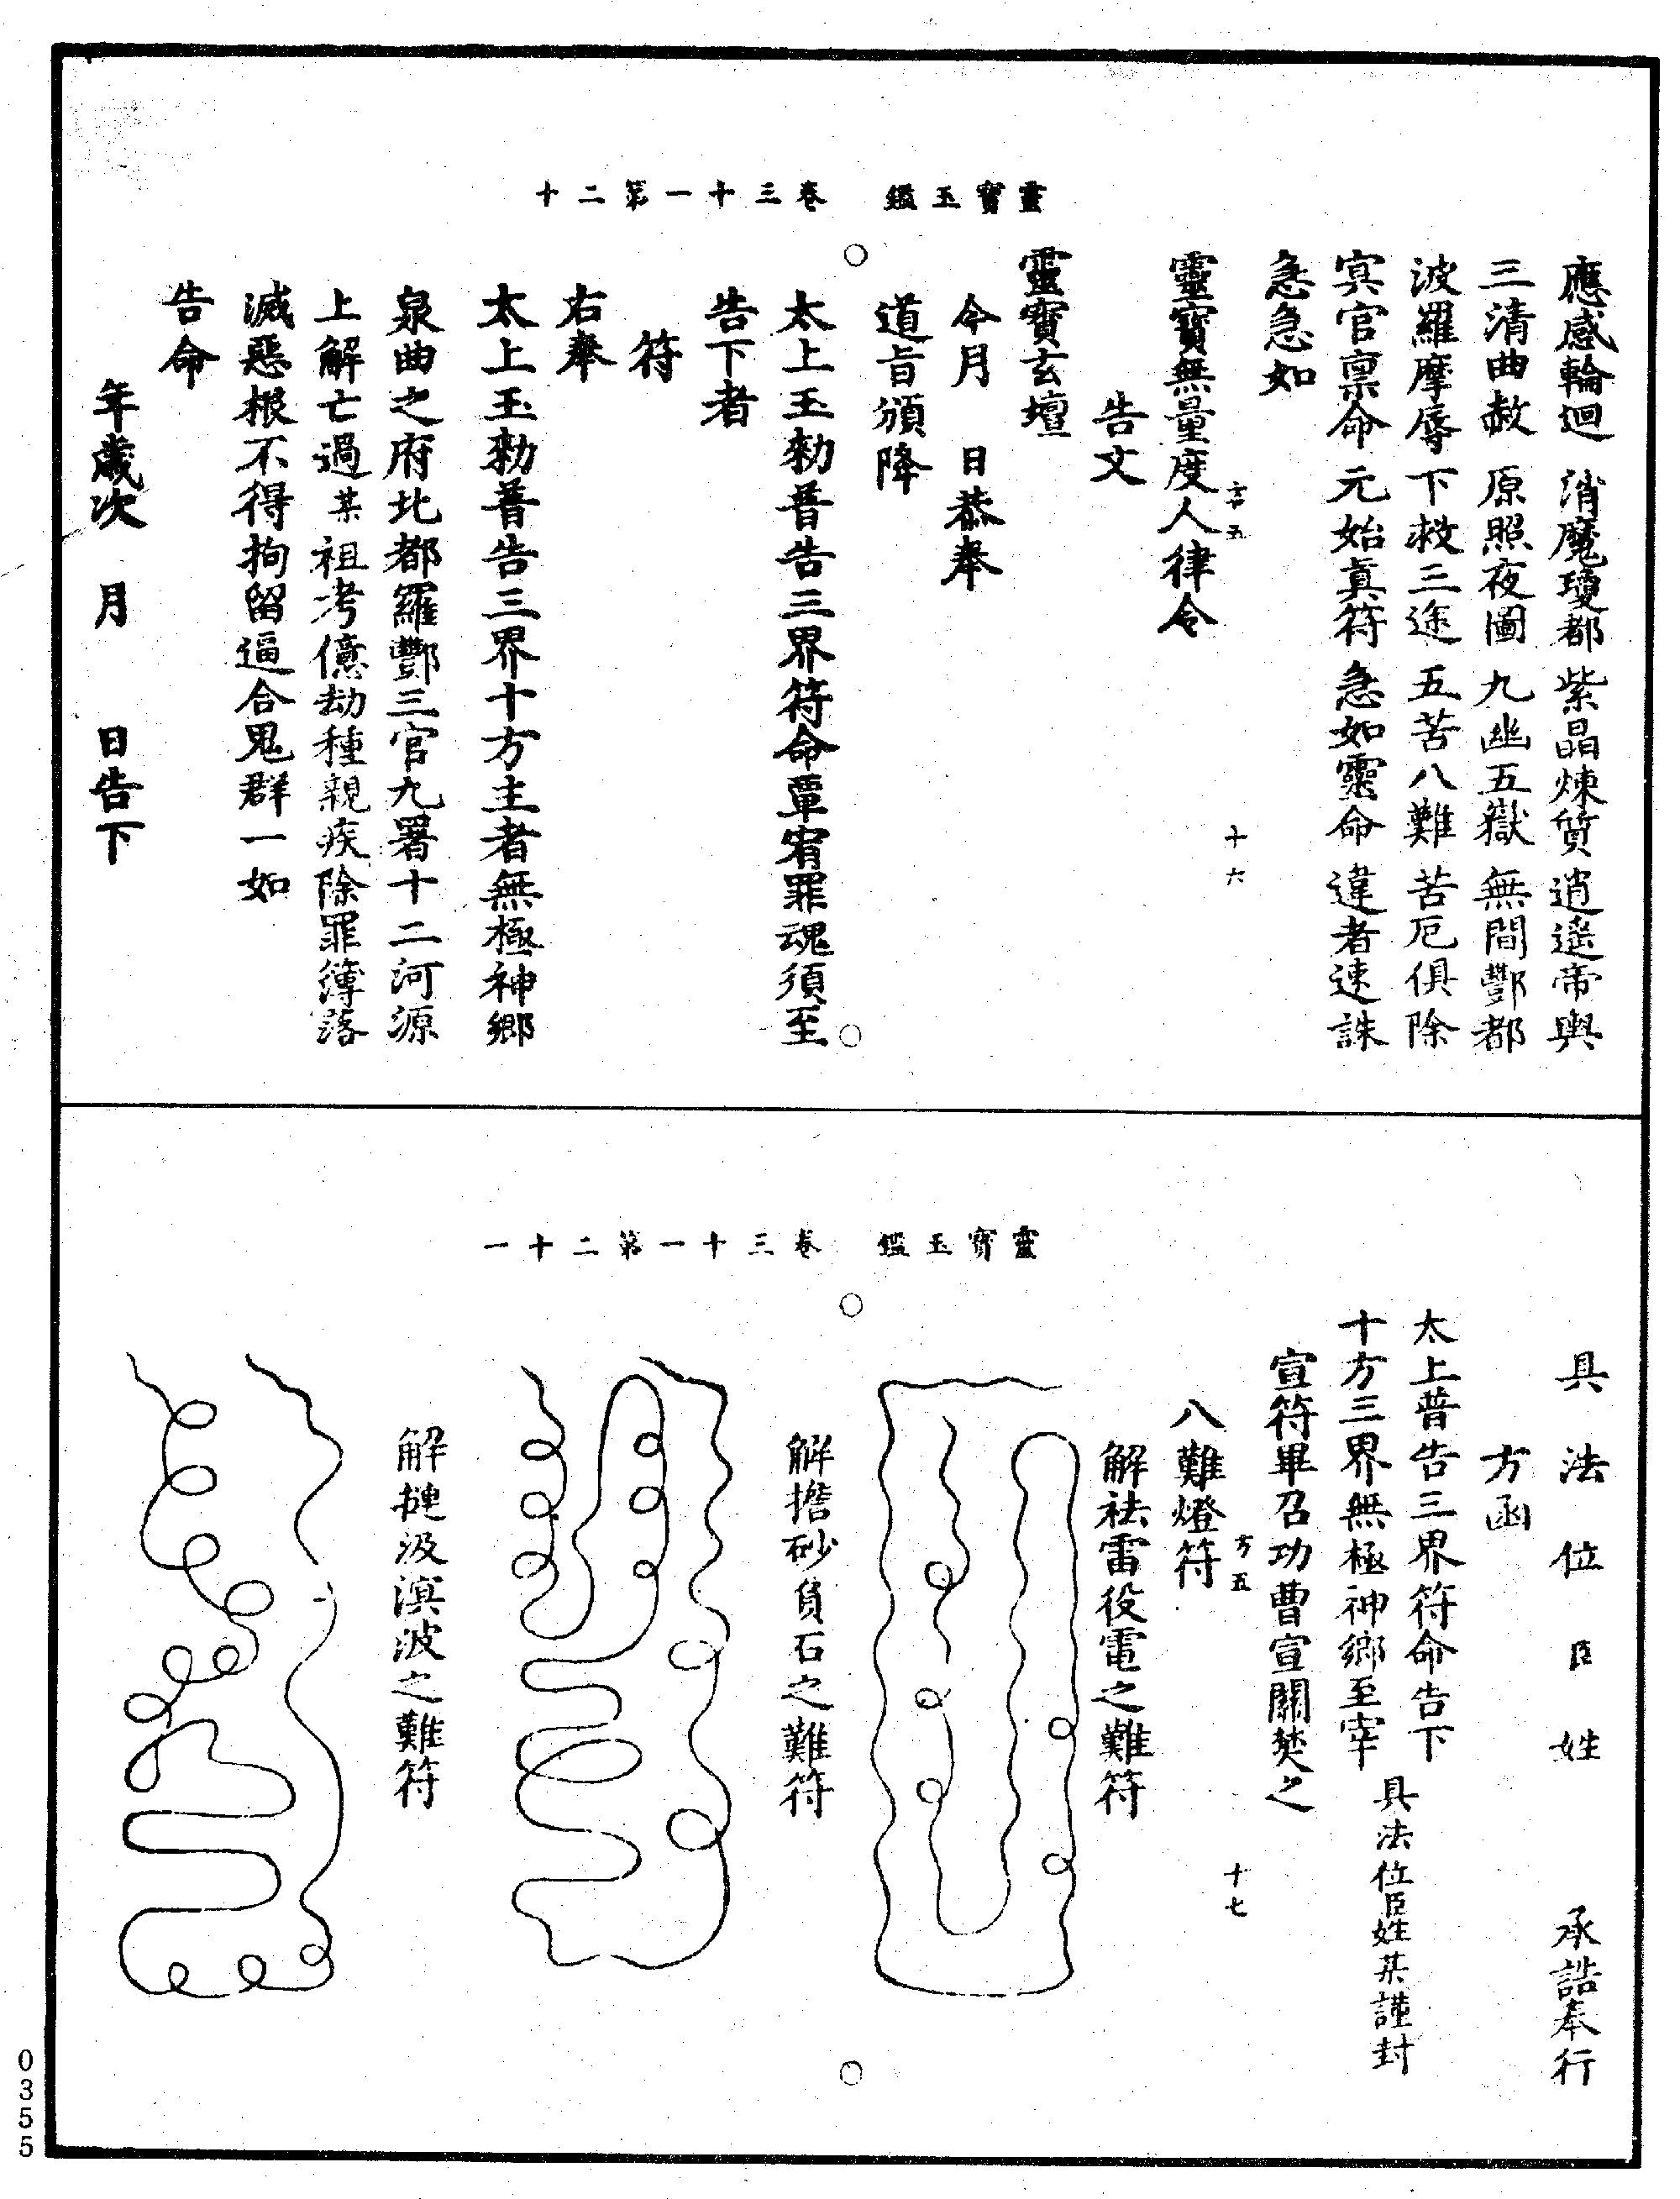 靈寶玉鑑　卷三十一第二十
應感輪迴　消魔瓊都　紫晶煉質　逍遙帝輿
三清曲赦　原照夜圖　九幽五獄　無間酆都
波羅摩辱　下救三途　五苦八難　苦厄俱除
冥官稟命　元始真符　急如靈命　違者速誅
急急如
靈寶無量度人律令
言五　十六
告文
靈寶玄壇
今月　日恭奉
道旨頒降
太上玉勑普告三界符命覃宥罪魂須至
告下者
符
右奉
太上玉勑普告三界十方主者無極神鄉
泉曲之府北都羅酆三官九署十二河源
上解亡過某祖考億劫種親疾除罪簿落
滅惡根不得拘留逼合鬼群一如
告命
年歲次　月　日告下
靈寶玉鑑　卷三十一第二十一
具法位臣姓　承誥奉行
方函
太上普告三界符命告下
十方三界無極神鄉至宰　具法位臣姓某謹封
宣符畢召功曹宣關焚之
方五　十七
八難燈符
解袪雷役電之難符
解擔砂負石之難符
解揵汲溟波之難符
0355